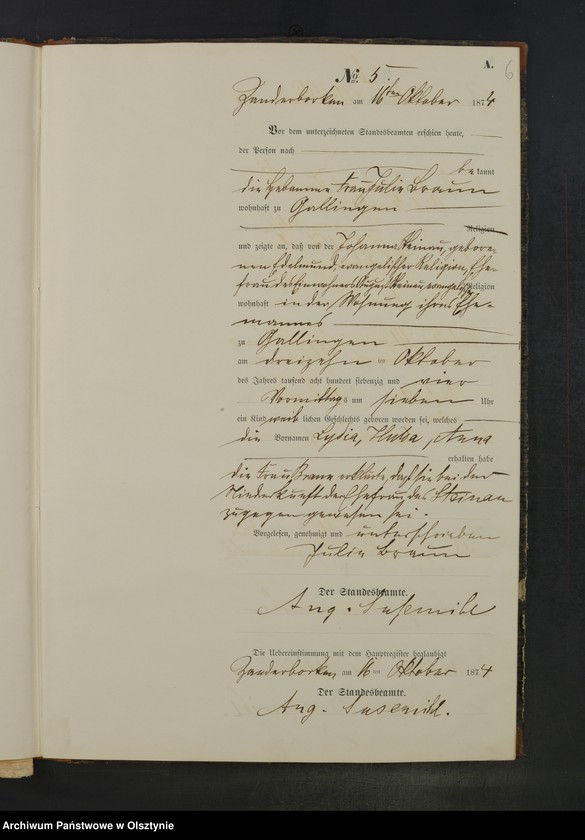 A.
6
No. 5
Zanderborken am 16ten Oktober 1874
Vor dem unterzeichneten Standesbeamten erschien heute,
der Person nach
bekannt
die Hebamme Frau Julie Braun
wohnhaft zu Gallingen
Religion
und zeigte an, daß von der Johanna Steinau, gebore-
nen Edelmund, evangelischer Religion, Ehe-
frau des Einwohners August Steinau, evangelisch Religion
wohnhaft in der Wohnung ihres Ehe-
mannes
zu Gallingen
am dreizehn ten Oktober
des Jahres tausend acht hundert siebenzig und vier
Vormittags um sieben Uhr
ein Kind weiblichen Geschlechts geboren worden sei, welches
die Vornamen Lydia, Anna
erhalten habe
die Frau Braun erklärte, daß sie bei der
Niederkunft der Ehefrau des Steinau
zugegen gewesen sei.
Vorgelesen, genehmigt und unterschrieben
Julie Braun
Der Standesbeamte.
Aug. Susemihl
Die Uebereinstimmung mit dem Hauptregister beglaubigt
Zanderborken am 16ten Oktober 1874
Der Standesbeamte.
Aug. Susemihl.
Archiwum Państwowe w Olsztynie